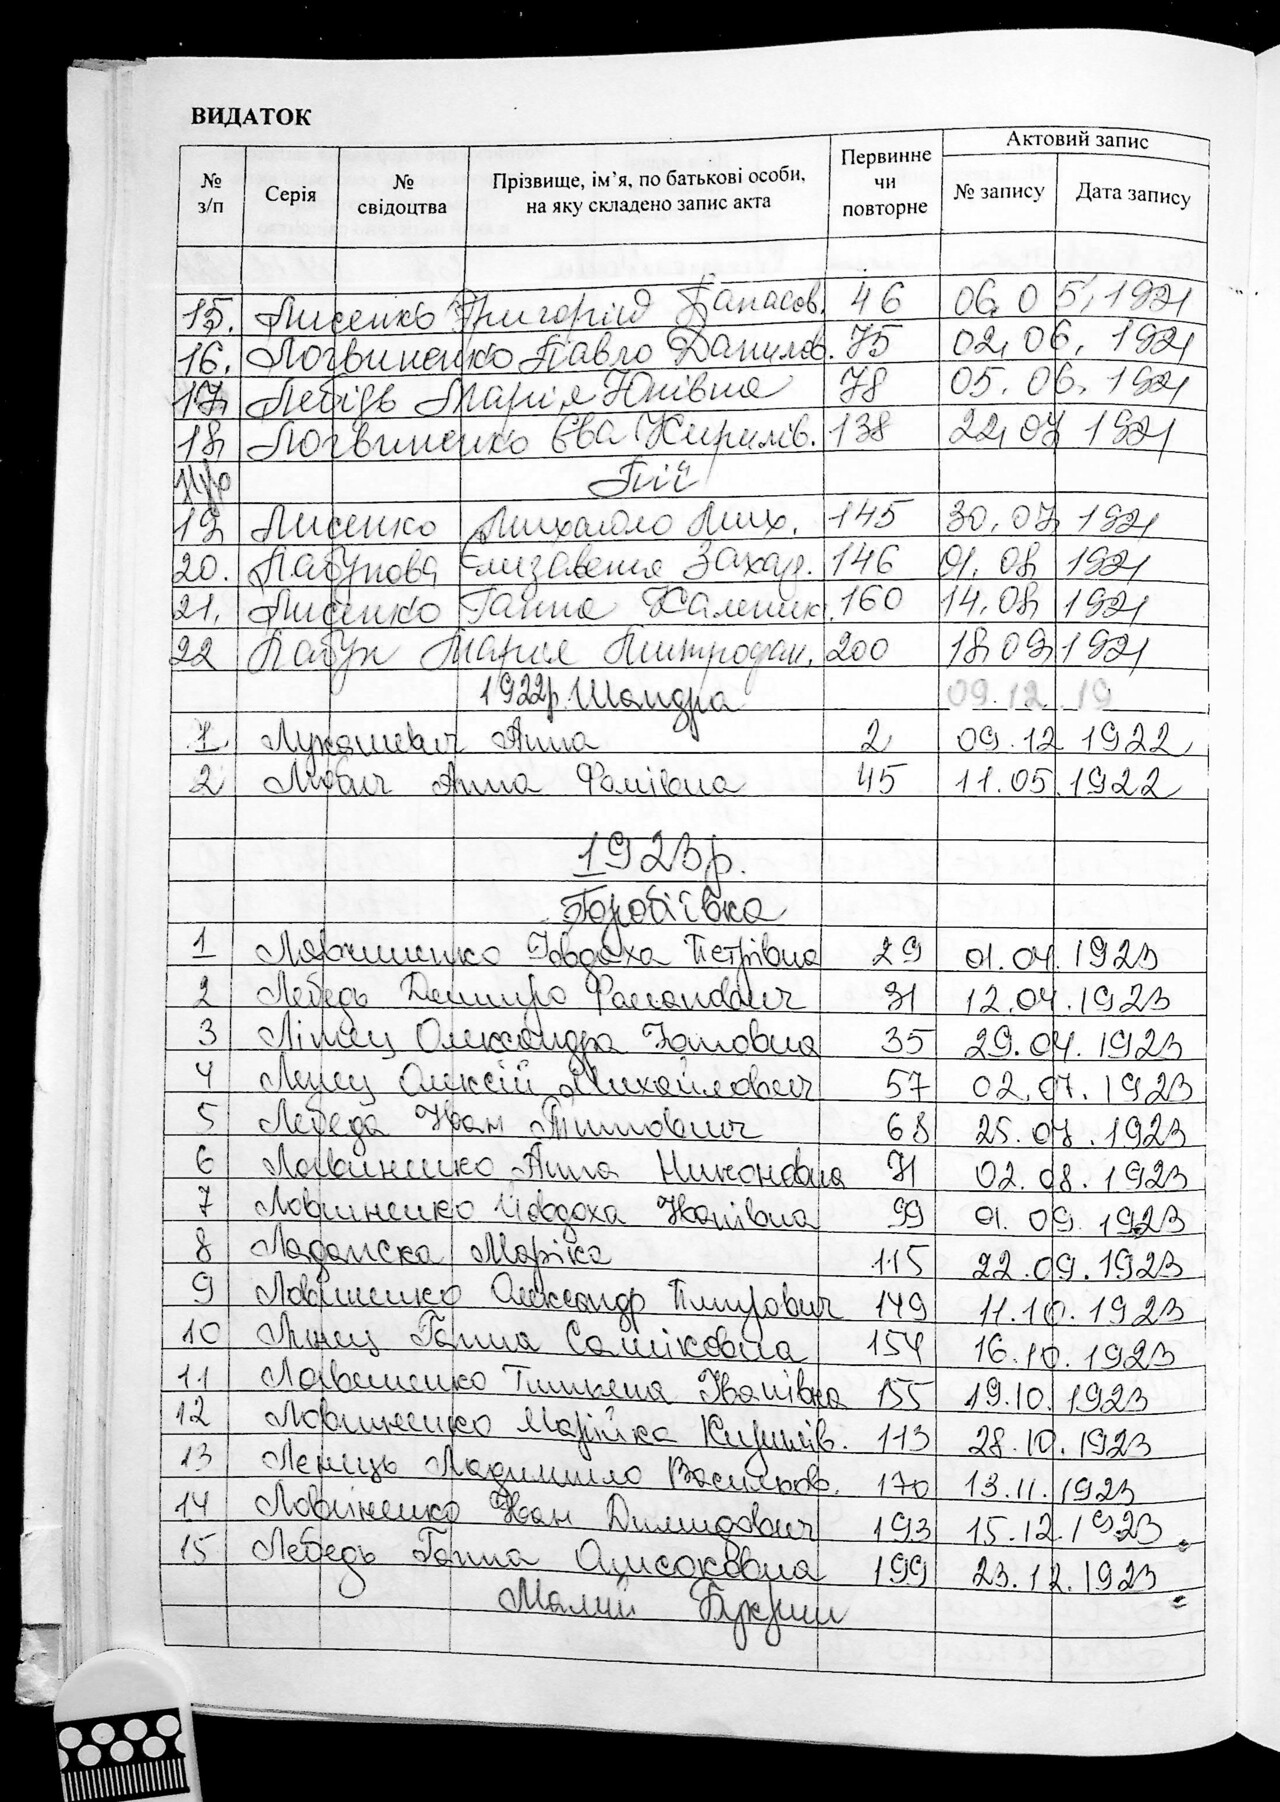 ВИДАТОК
№ з/п Серія № свідоцтва Прізвище, ім’я, по батькові особи, на яку складено запис акта Первинне чи повторне Актовий запис № запису Дата запису
15. Лисенко Григорій Панасов. 46 06.05.1921
16. Логвиненко Павло Данилов. 75 02.06.1921
17. Лебідь Марія Юхівна 78 05.06.1921
18. Логвиненко Єва Кирилів. 138 22.07 1921
Пії
19 Лисенко Михайло Мих. 145 30.07 1921
20. Лабунова Єлизавета Захар. 146 01.08 1921
21. Лисенко Ганна Каленик. 160 14.08 1921
22 Лабун Марія Митрофан. 200 18.09 1921
1922р. Шандра 09.12.19
1 Лукашевич Анна 2 09.12 1922
2 Любич Анна Фомівна 45 11.05.1922
1923р.
Горобіївка
1 Явдоха Петрівна 29 01.04.1923
2 Лебедь Дмитро 31 12.04.1923
3 Олександра 35 29.04.1923
4 Олексій Михайлович 57 02.07.1923
5 Лебеда Іван 68 25.07.1923
6 Ловиненко Анна Никоновна 71 02.08.1923
7 Ловиненко Явдоха Іванівна 99 01.09.1923
8 Ладамска Маріка 115 22.09.1923
9 Ловиненко Олександр 149 11.10.1923
10 Ганна 154 16.10.1923
11 Ловиненко Іванівна 155 19.10.1923
12 Ловиненко Марійка Кирилів. 113 28.10.1923
13 Васильов. 170 13.11.1923
14 Ловіненко Іван Димидович 193 15.12.1923
15 Лебедь Ганна 199 23.12.1923
Малий Букрин